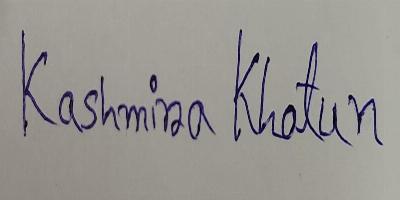 Kashmira Khatun